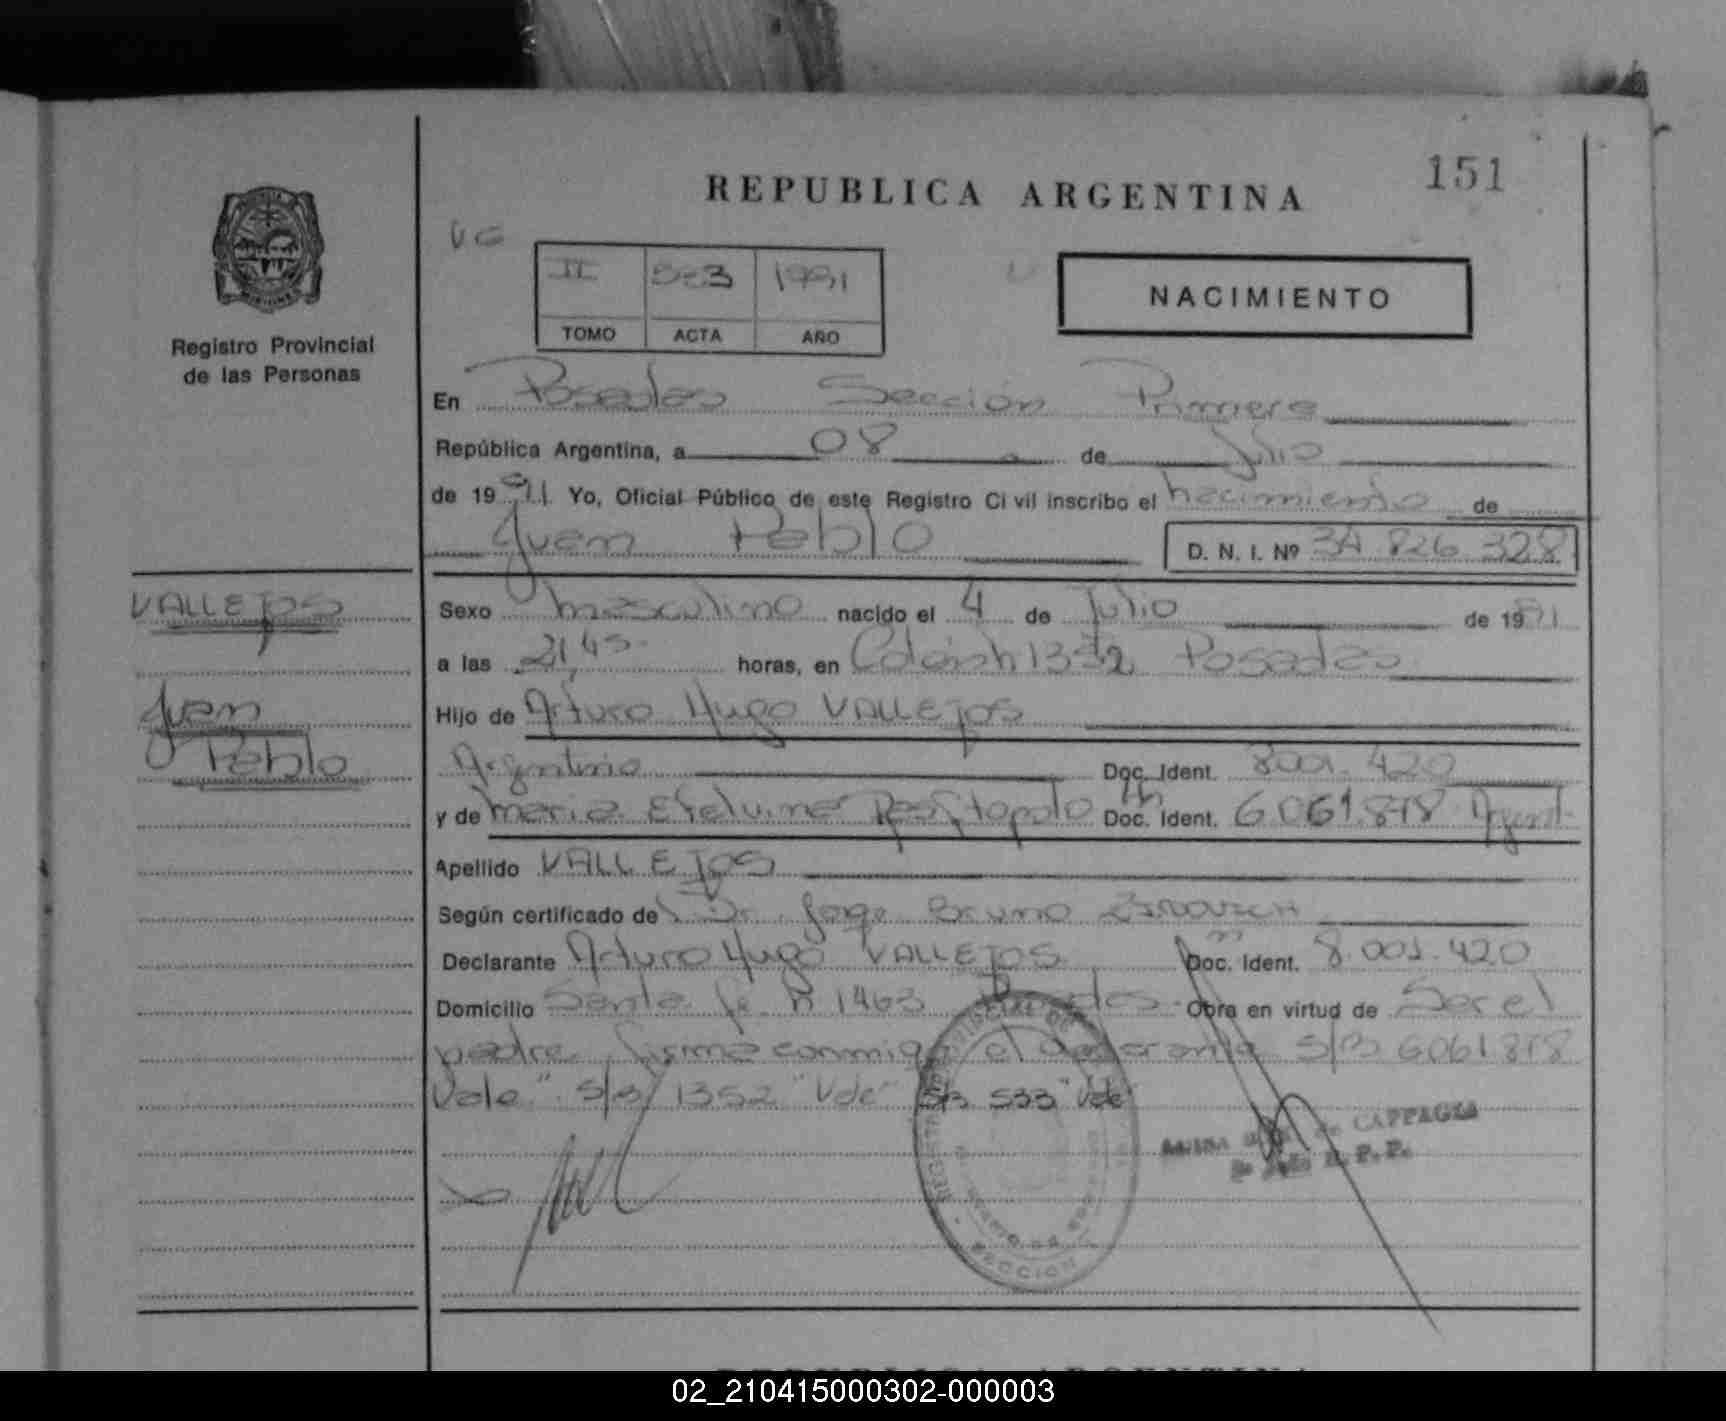 151
REPUBLICA ARGENTINA
II 533 1991
TOMO ACTA AÑO
NACIMIENTO
Registro Provincial
de las Personas
En Posadas Sección Primera
República Argentina, a 08 de Julio
de 1991 Yo, Oficial Público de este Registro Civil inscribo el nacimiento de
Juan Pablo D. N. I. Nº 34 826 328
VALLEJOS
Juan
Pablo
Sexo masculino nacido el 4 de Julio de 1991
a las 21,45 horas, en Colón n 1352 Posadas
Hijo de Arturo Hugo VALLEJOS
Argentino Doc. Ident. 8001.420
y de Maria Etelvina Doc. Ident. 6.061.878 Argent.
Apellido VALLEJOS
Según certificado de Dr. Jorge Bruno
Declarante Arturo Hugo VALLEJOS Doc. Ident. 8.001.420
Domicilio Santa Fe n 1463 Posadas Obra en virtud de Ser el
padre firma conmigo el declarante S/B 6061878
Vale" S/B 1352 "Vale" S/B 533 "Vale"
SECCION
de CAPPAGLI
R. P. P.
REPUBLICA ARGENTINA
02_210415000302-000003